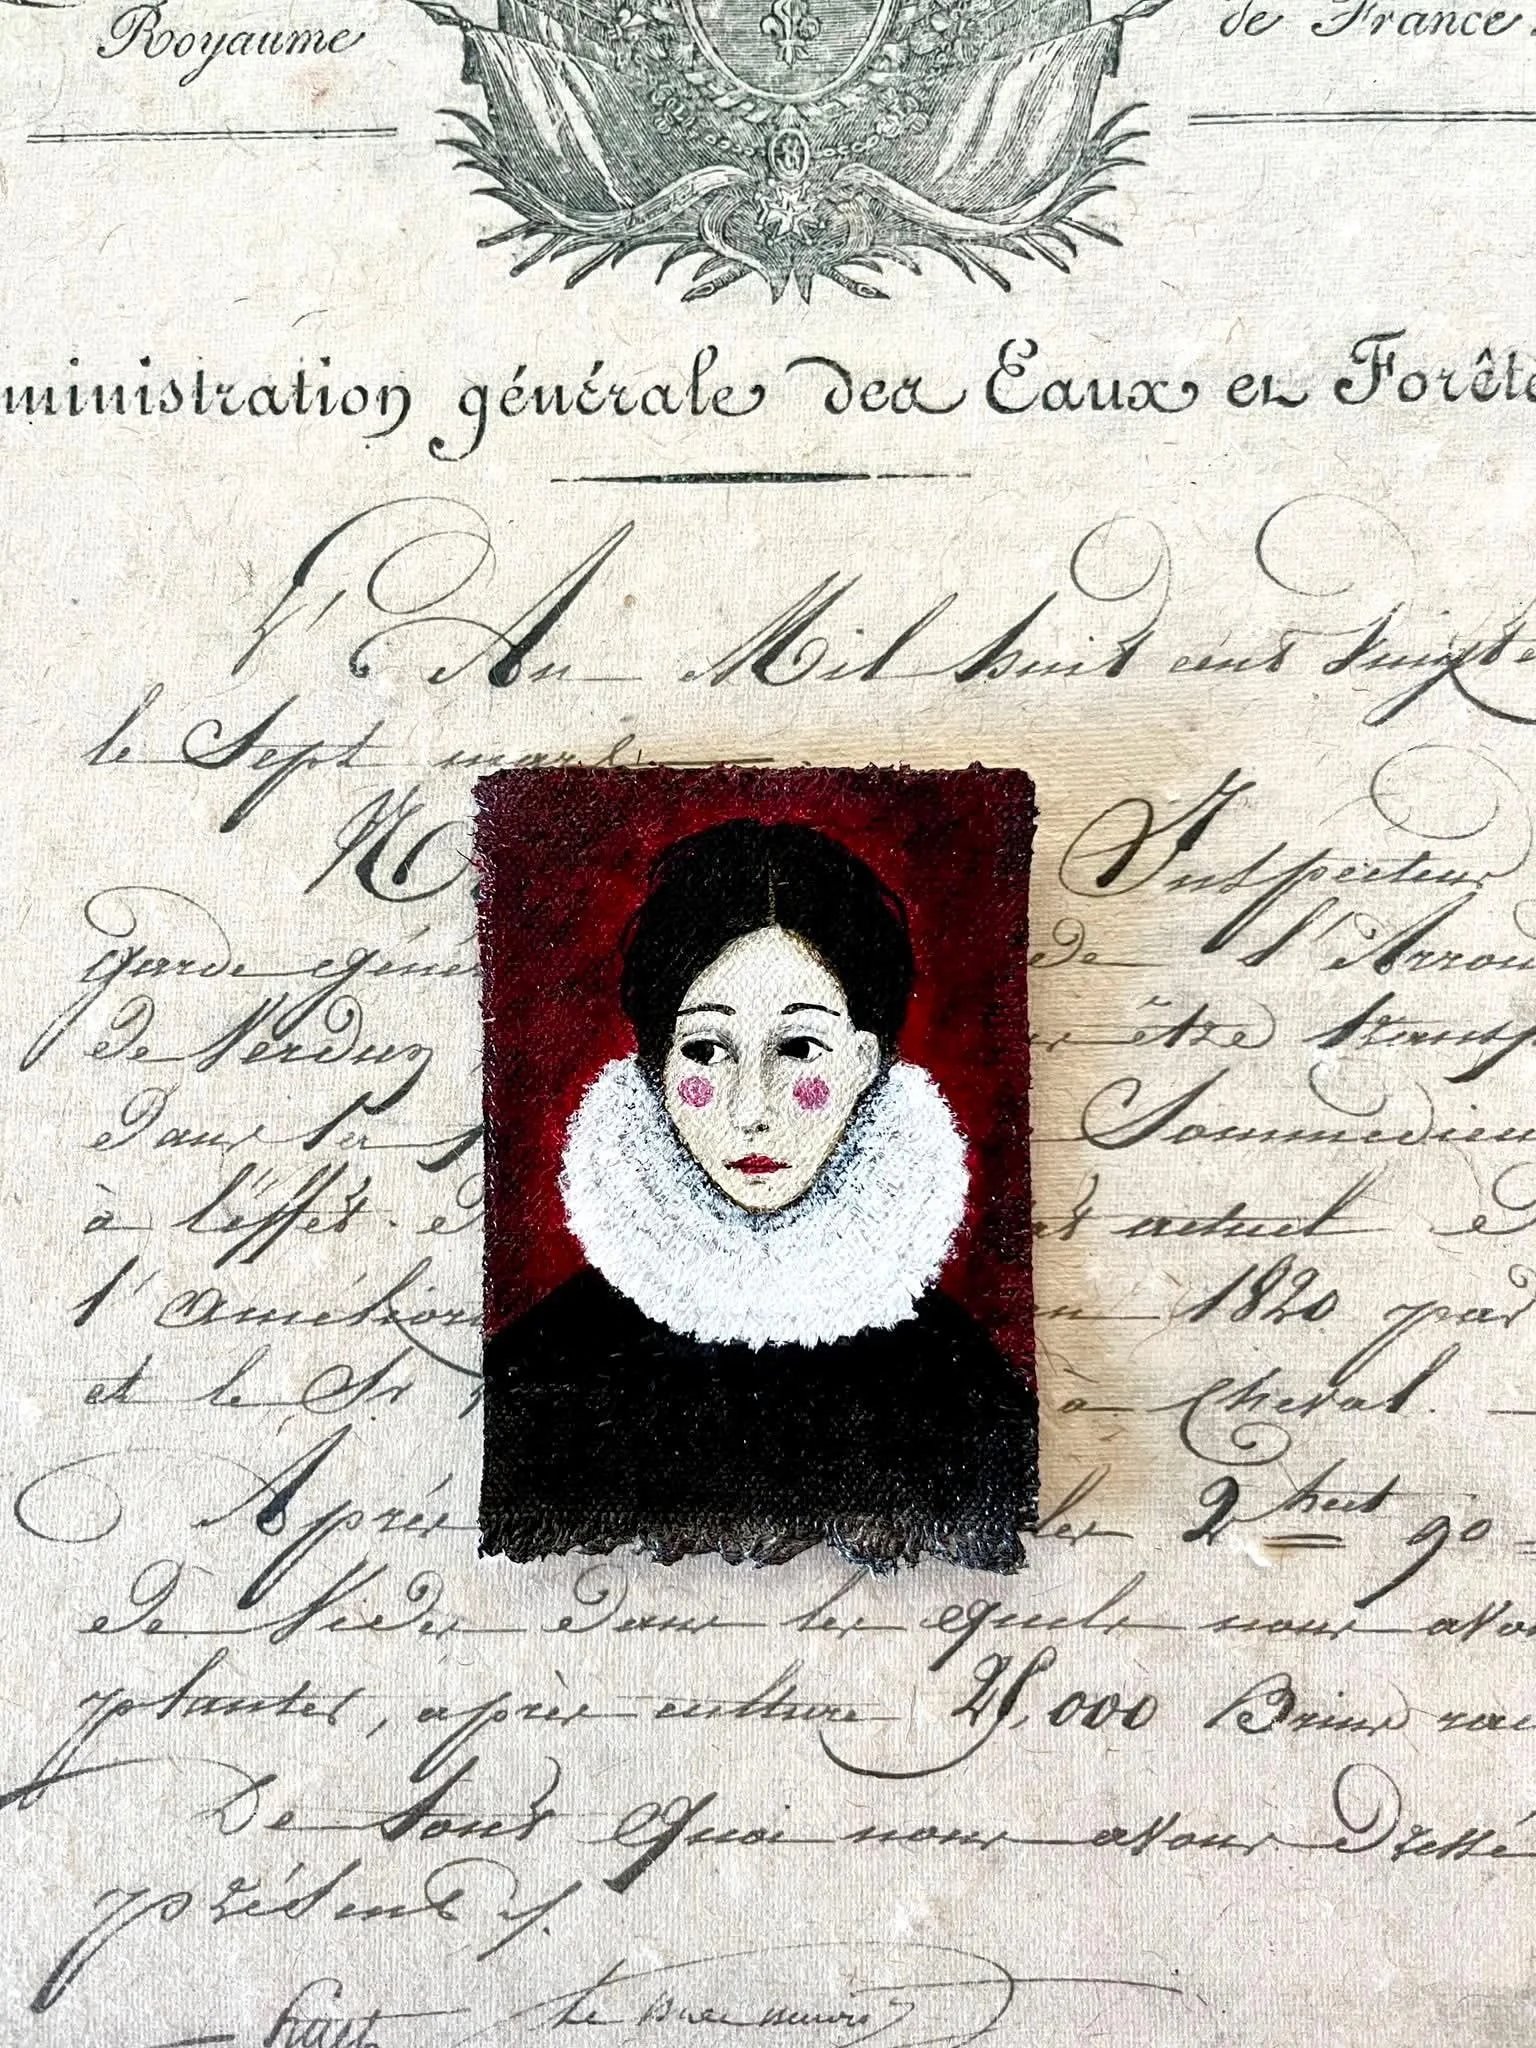 Royaume de France.
ministration générale des Eaux et Forêts
L'An Mil huit cent vingt
le Sept mars
Inspecteur
garde géné de l'Arron
de Verdun être transp
Dans les Sommedieu
à l'effet d actuel
l'amélior en 1820 par
et le Sr à Cheval.
Après les 2 hect 90
de Vides dans les quels nous avo
planter, après culture 25,000 Brins
De tout Quoi nous avons Dressé
présent